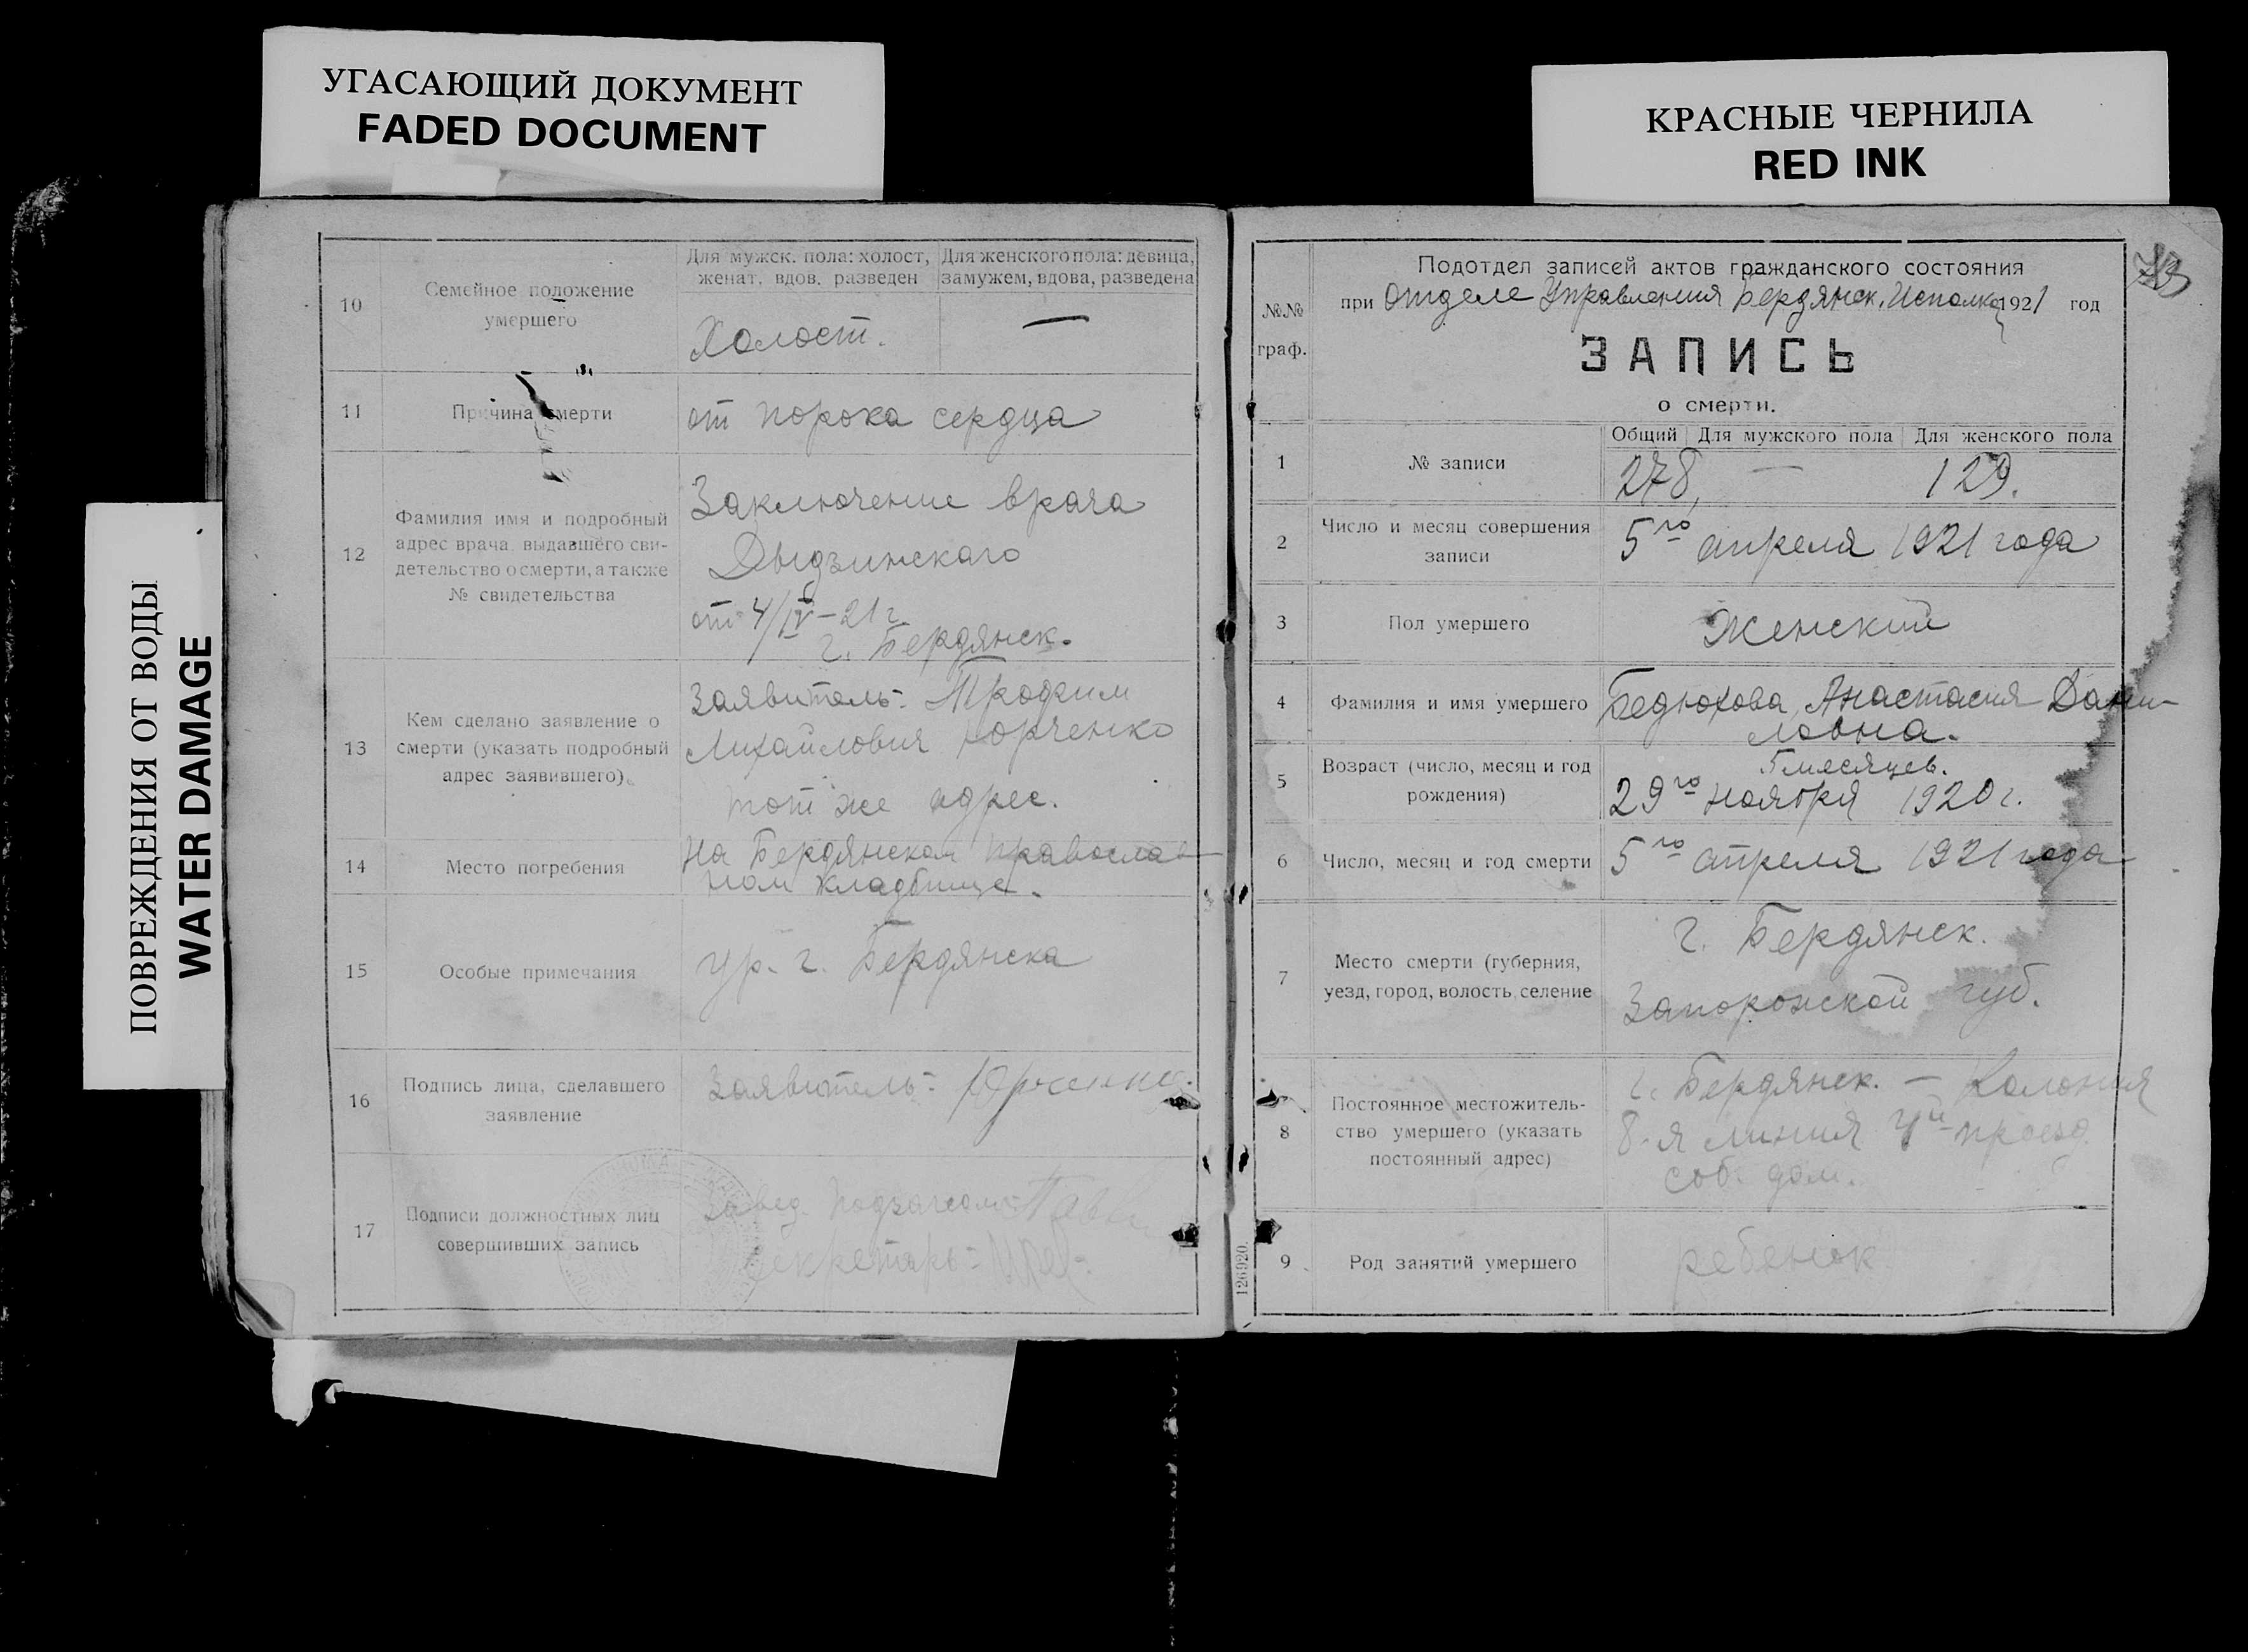 УГАСАЮЩИЙ ДОКУМЕНТ
FADED DOCUMENT
КРАСНЫЕ ЧЕРНИЛА
RED INK
ПОВРЕЖДЕНИЯ ОТ ВОДЫ
WATER DAMAGE
10
Семейное положение
умершего
Для мужск. пола: холост,
женат, вдов, разведен
Для женского пола: девица,
замужем, вдова, разведена
Холост.
—
11
Причина смерти
от порока сердца
12
Фамилия имя и подробный
адрес врача, выдавшего сви-
детельство о смерти, а также
№ свидетельства
Заключение врача
Дыдзинскаго
от 4/IV–21 г.
г. Бердянск.
13
Кем сделано заявление о
смерти (указать подробный
адрес заявившего)
Заявитель:- Трофим
Михайлович Юрченко
тот же адрес.
14
Место погребения
На Бердянском православ-
ном кладбище.
15
Особые примечания
ур. г. Бердянска
16
Подпись лица, сделавшего
заявление
Заявитель:-
17
Подписи должностных лиц
совершивших запись
Завед.
Секретарь:-
№№
граф.
Подотдел записей актов гражданского состояния
при Отделе Управления Бердянск. Исполко 1921 год
ЗАПИСЬ
о смерти.
1
№ записи
Общий
Для мужского пола
Для женского пола
278,
—
129.
2
Число и месяц совершения
записи
5го апреля 1921 года
3
Пол умершего
Женский
4
Фамилия и имя умершего
Бедюхова, Анастасия Дани-
ловна.
5
Возраст (число, месяц и год
рождения)
5 месяцев.
29го ноября 1920 г.
6
Число, месяц и год смерти
5го апреля 1921 года
7
Место смерти (губерния,
уезд, город, волость, селение
г. Бердянск.
Запорожской губ.
8
Постоянное местожитель-
ство умершего (указать
постоянный адрес)
г. Бердянск. — Колония
8-я линия 4й проезд
соб. дом.
9
Род занятий умершего
ребенок
126920.